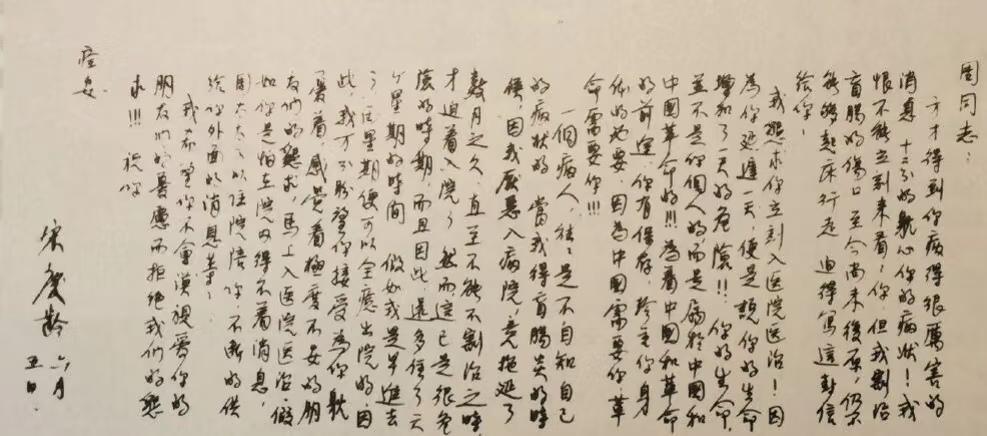 周同志：
方才得到你病得很厉害的
消息，十二分的躭心你的病状！我
恨不能立刻来看你，但我割治
盲腸的傷口至今尚未復原，仍不
能够起床行走，迫得写這封信
给你！
我恳求你立刻入医院医治！因
為你延遲一天，便是說你的生命
增加了一天的危險！！你的生命
並不是你個人的，而是属於中國和
中國革命的！！！為着中國和革命
的前途，你有保存，珍重你身
体的必要，因為中國需要你，革
命需要你！！！
一個病人，往々是不自知自己
的病状的。當我得盲腸炎的時
候，因我厭惡入病院，竟拖延了
数月之久，直至不能不割治之時，
才迫着入院了，然而這已是很危
險的時期，而且因此還多住了六
个星期的時间，假如我是早進去
了，两星期便可以全癒出院的。因
此，我万分盼望你接受為你躭
憂着，感覚着極度不安的朋
友们的懇求，馬上入医院医治，假
如你是怕在院内得不着消息，
周太太可以住院陪你，不断的供
给你外面的消息等，
我希望你不會漠視愛你的
朋友们的憂慮而拒绝我们的懇
求！！！祝你
痊安
宋慶齡 六月
五日